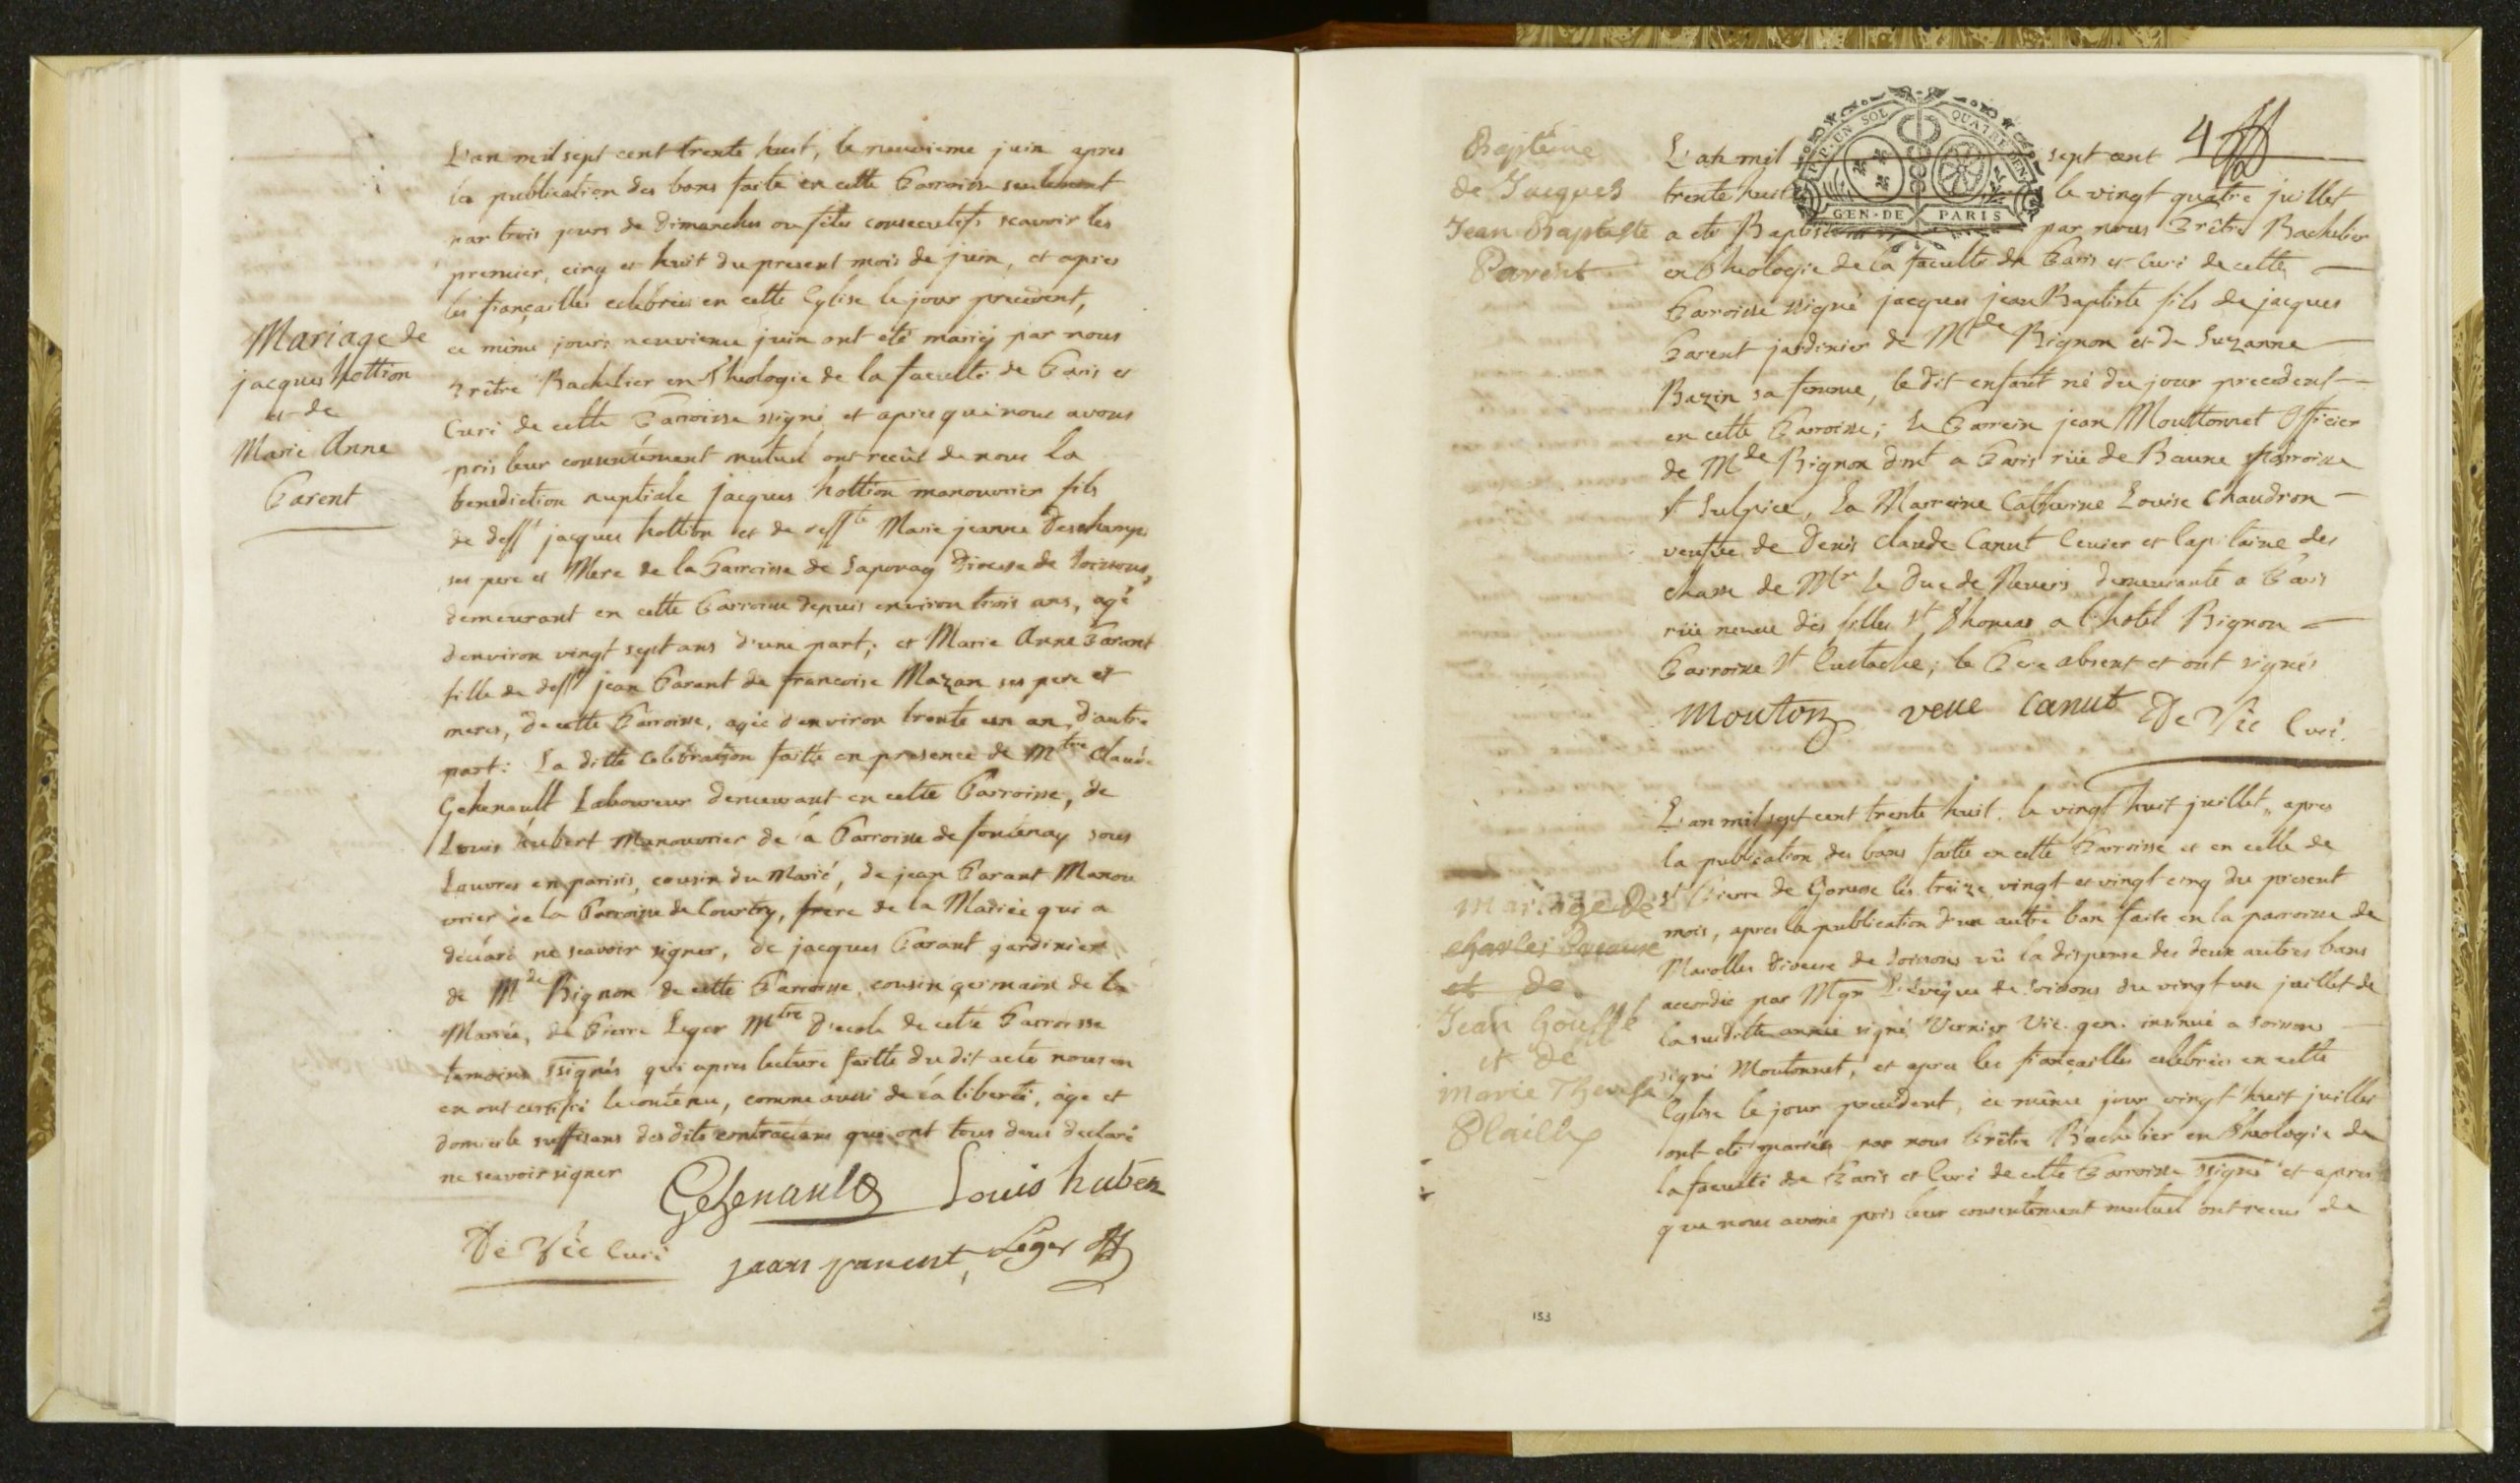 L'an mil sept cent trente huit, le neuvieme juin apres
la publication des bans faite en cette Parroisse seulement
par trois jours de Dimanches ou fêtes consecutifs scavoir les
premier, cinq et huit du present mois de juin, et apres
les fiançailles celebrées en cette Eglise le jour precedent,
ce même jour neuvieme juin ont eté mariéz par nous
Prêtre Bachelier en Theologie de la faculté de Paris et
Curé de cette Parroisse ssigné et apres que nous avons
pris leur consentement mutuel ont recûs de nous la
benediction nuptiale jacques hottion manouvrier fils
de deff^t jacques hottion et de deff^te Marie jeanne Deschamps
ses pere et Mere de la Parroisse de Saponay Diocese de Soissons,
demeurant en cette Parroisse depuis environ trois ans, agé
d'environ vingt sept ans d'une part; et Marie Anne Parent
fille de deff^t jean Parent de francoise Mazan ses pere et
meres, de cette Parroisse, agée d'environ trente un an, d'autre
part: La ditte celebration faitte en presence de M^tre Claude
Gehenault Laboureur demeurant en cette Parroisse, de
Louis hubert Manouvrier de la Parroisse de fontenay sous
Louvres en parisis, cousin du Marié, de jean Parant Manou
vrier de la Parroisse de Courtry, frere de la Mariée qui a
déclaré ne scavoir signer, de jacques Parant gardinier
de M^de Bignon de cette Parroisse, cousin germain de la
Mariée, de Pierre Leger M^tre d'ecole de cette Parroisse
temoins ssignés qui apres lecture faitte du dit acte nous en
en ont certifié le contenu, comme aussi de la liberté, âge et
domicile suffisans des dits contractans qui ont tous deux declaré
ne scavoir signer
Mariage de
jacques hottion
et de
Marie Anne
Parent
Gehenault Louis huber
De Vic Curé jaars parent, Léger
Baptême
de Jacques
Jean Baptiste
Parent
GEN·DE PARIS
UN SOL QUATRE DEN.
4
L'an mil sept cent
trente huit le vingt quatre juillet
a eté Baptisé par nous Prêtre Bachelier
en Theologie de la faculté de Paris et Curé de cette
Parroisse ssigné jacques jean Baptiste fils de jacques
Parent jardinier de M^de Bignon et de Suzanne
Bazin sa femme, le dit enfant né du jour precedent
en cette Parroisse; le Parrein jean Mouttonnet Officier
de M^de Bignon dmt a Paris rüe de Baune Parroisse
St Sulpice, La Marreine Catherine Louise Chaudron
veufve de Denis Claude Canut Ecuier et Capitaine des
chasse de M^r le Duc de Nevers demeurante a Paris
rüe neuve des filles St Thomas a l'hotel Bignon
Parroisse St Eustache; le Pere absent et ont signés
Mouton veue Canut De Vic Curé.
L'an mil sept cent trente huit, le vingt huit juillet, apres
la publication des bans faitte en cette Parroisse et en celle de
St Pierre de Gonesse les treize, vingt et vingt cinq du present
mois, apres la publication d'un autre ban faite en la parroisse de
Marolles Diocese de Soissons vû la dispense des deux autres bans
accordée par Mgr L'evêque de Soissons du vingt un juillet de
la susditte année signé Vernier Vic. gen. insinué a Soissons
signé Moutonnet, et apres les fiançailles celebrées en cette
Eglise le jour precedent, ce même jour vingt huit juillet
ont eté mariés par nous Prêtre Bachelier en Theologie de
la faculté de Paris et Curé de cette Parroisse ssigné et apres
que nous avons pris leur consentement mutuel ont recus de
Mariage De
Charles
et de
Jean Gouffé
et de
Marie Therese
Plailly
153